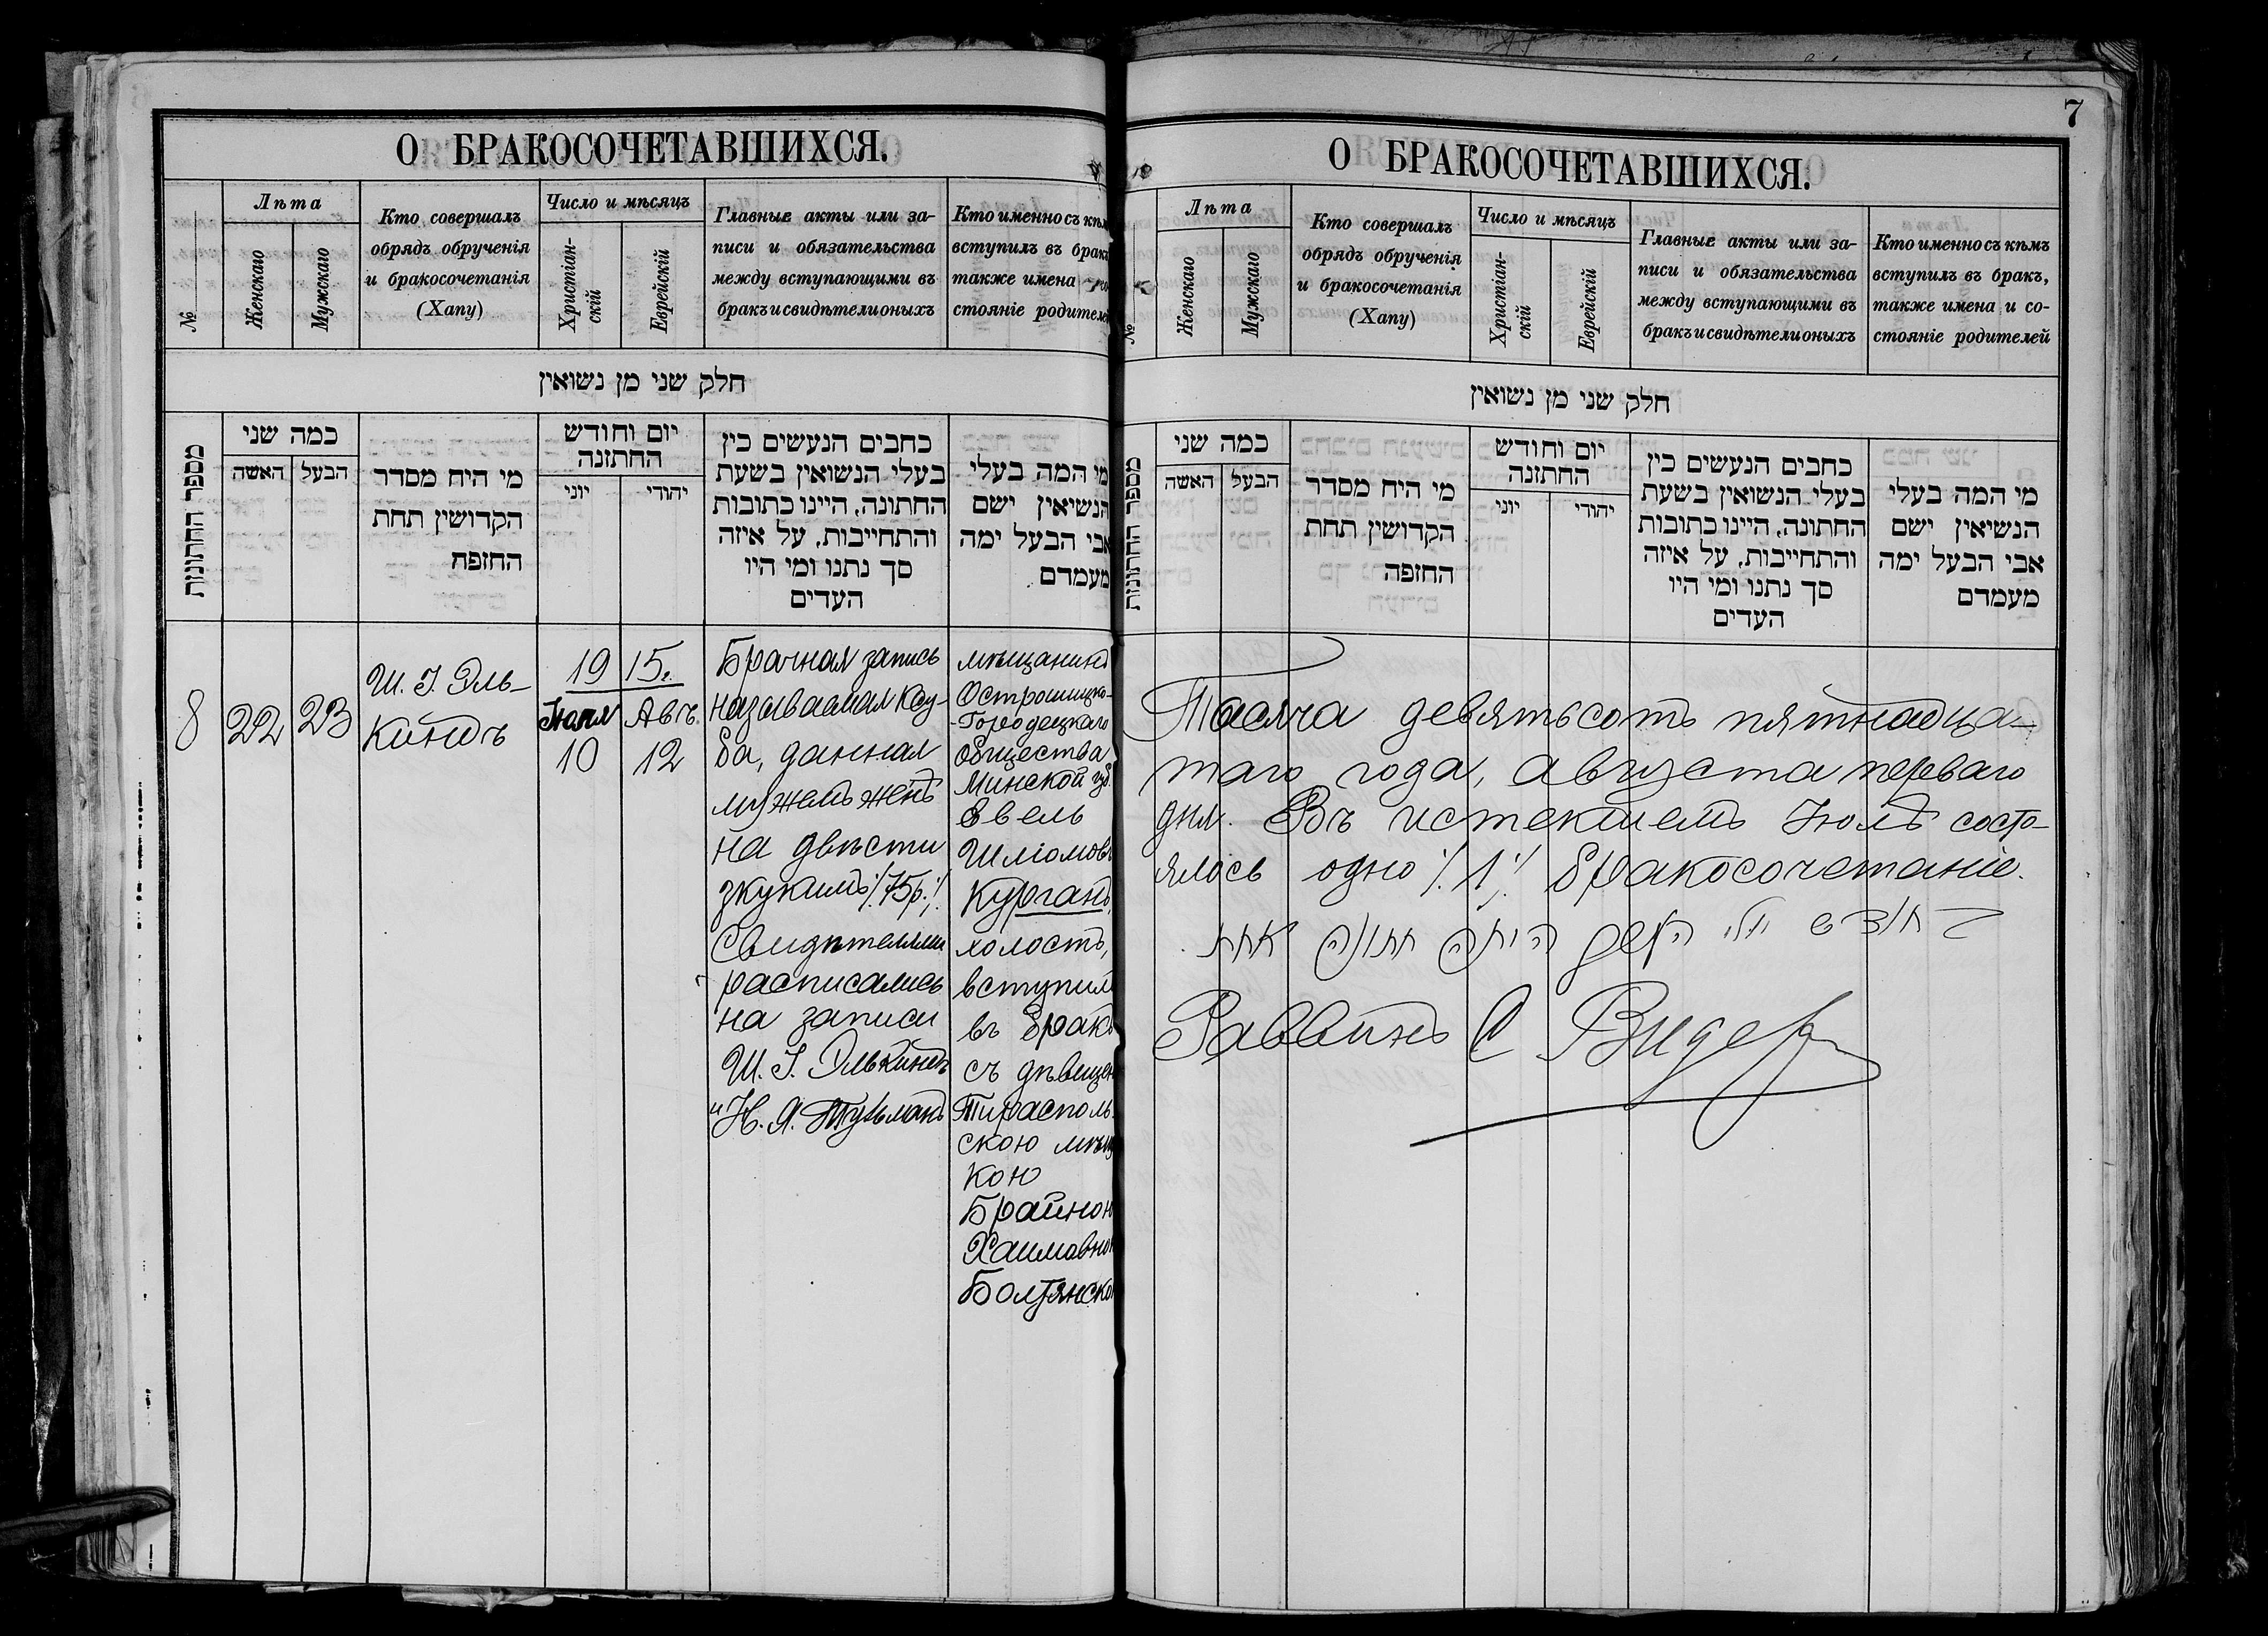 О БРАКОСОЧЕТАВШИХСЯ.
№
Лѣта
Женскаго
Мужскаго
Кто совершалъ
обрядъ обрученія
и бракосочетанія
(Хапу)
Число и мѣсяцъ
Христіан-
скій
Еврейскій
Главные акты или за-
писи и обязательства
между вступающими въ
бракъ и свидѣтели оныхъ
Кто именно съ кѣм
вступилъ въ брак
также имена
стояніе родителе
חלק שני מן נשואין
מספר החתונות
כמה שני
האשה
הבעל
מי היח מסדר
הקדושין תחת
החזפח
יום וחודש
החתזנה
יוני
יהודי
כחבים הנעשים כין
בעלי הנשואין בשעת
החתונה, היינו כתובות
והתחייבות, על איזה
סך נתנו ומי היו
העדים
מי המה בעלי
הנשיאין ישם
אבי הבעל ימה
מעמדם
8
22
23
Ш. І. Эль-
киндъ
1915г.
Іюля
10
Авъ.
12
Брачная запись
называемая Ксу-
ба, данная
мужемъ женѣ
на двѣсти
зкукимъ ∕.75р.∕.
Свидѣтелями
расписались
на записи
Ш. І. Элькиндъ
и Н. Я. Тульманъ
мѣщанинъ
Острошицко-
-Городецкаго
общества
Минской губ.
Евель
Шліомовъ
Курганъ,
холостъ,
вступилъ
въ бракъ
съ дѣвицею
Тирасполь-
скою мѣщ
кою
Брайною
Хаимовно
Болтянско
7
О БРАКОСОЧЕТАВШИХСЯ.
№
Лѣта
Женскаго
Мужскаго
Кто совершалъ
обрядъ обрученія
и бракосочетанія
(Хапу)
Число и мѣсяцъ
Христіан-
скій
Еврейскій
Главные акты или за-
писи и обязательства
между вступающими въ
бракъ и свидѣтели оныхъ
Кто именно съ кѣмъ
вступилъ въ бракъ,
также имена и со-
стояніе родителей
חלק שני מן נשואין
מספר החתונות
כמה שני
האשה
הבעל
מי היח מסדר
הקדושין תחת
החזפה
יום וחודש
החתזנה
יוני
יהודי
כחבים הנעשים כין
בעלי הנשואין בשעת
החתונה, היינו כתובות
והתחייבות, על איזה
סך נתנו ומי היו
העדים
מי המה בעלי
הנשיאין ישם
אבי הבעל ימה
מעמדם
Тысяча девятьсотъ пятнадца-
таго года, августа перваго
дня. Въ истекшемъ Іюлѣ состо-
ялось одно ∕.1.∕ бракосочетаніе.
בחודש יולי היתה חתונה אחת.
Раввинъ С Видер